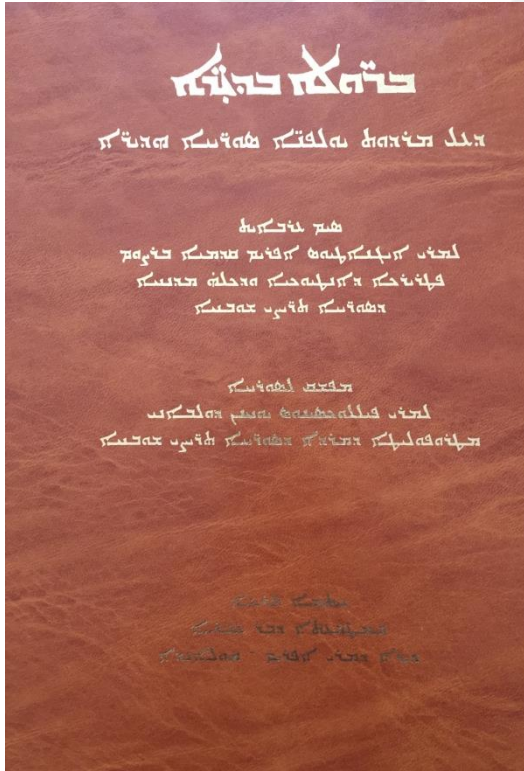 ܒܪ̈ܘܠܐ ܒܕܝܪ̈ܐ
ܕܥܠ ܡܪܕܘܬ ܝܘܠܦܢ̈ܐ ܣܘܪ̈ܝܝܐ ܗܕܝܪ̈ܐ
ܣܝܡ ܥܪܒܐܝܬ
ܠܡܪܝ ܐܝܓܢܐܛܝܘܣ ܐܦܪܝܡ ܩܕܡܝܐ ܒܪܨܘܡ
ܦܛܪܝܪܟܐ ܕܐܢܛܝܘܟܝܐ ܘܕܟܠܗ̇ ܡܕܢܚܐ
ܕܣܘܪ̈ܝܝܐ ܬܪ̈ܝܨܝ ܫܘܒܚܐ
ܡܦܫܩ ܠܣܘܪܝܝܐ
ܠܡܪܝ ܦܝܠܠܘܟܣܝܢܘܣ ܝܘܚܢܢ ܕܘܠܒܐܢܝ
ܡܛܪܘܦܘܠܝܛܐ ܕܡܪܕܐ ܕܣܘܪ̈ܝܝܐ ܬܪ̈ܝܨܝ ܫܘܒܚܐ
ܕܒܪ
ܕܡܪܝ ܐܦܪܝܡ